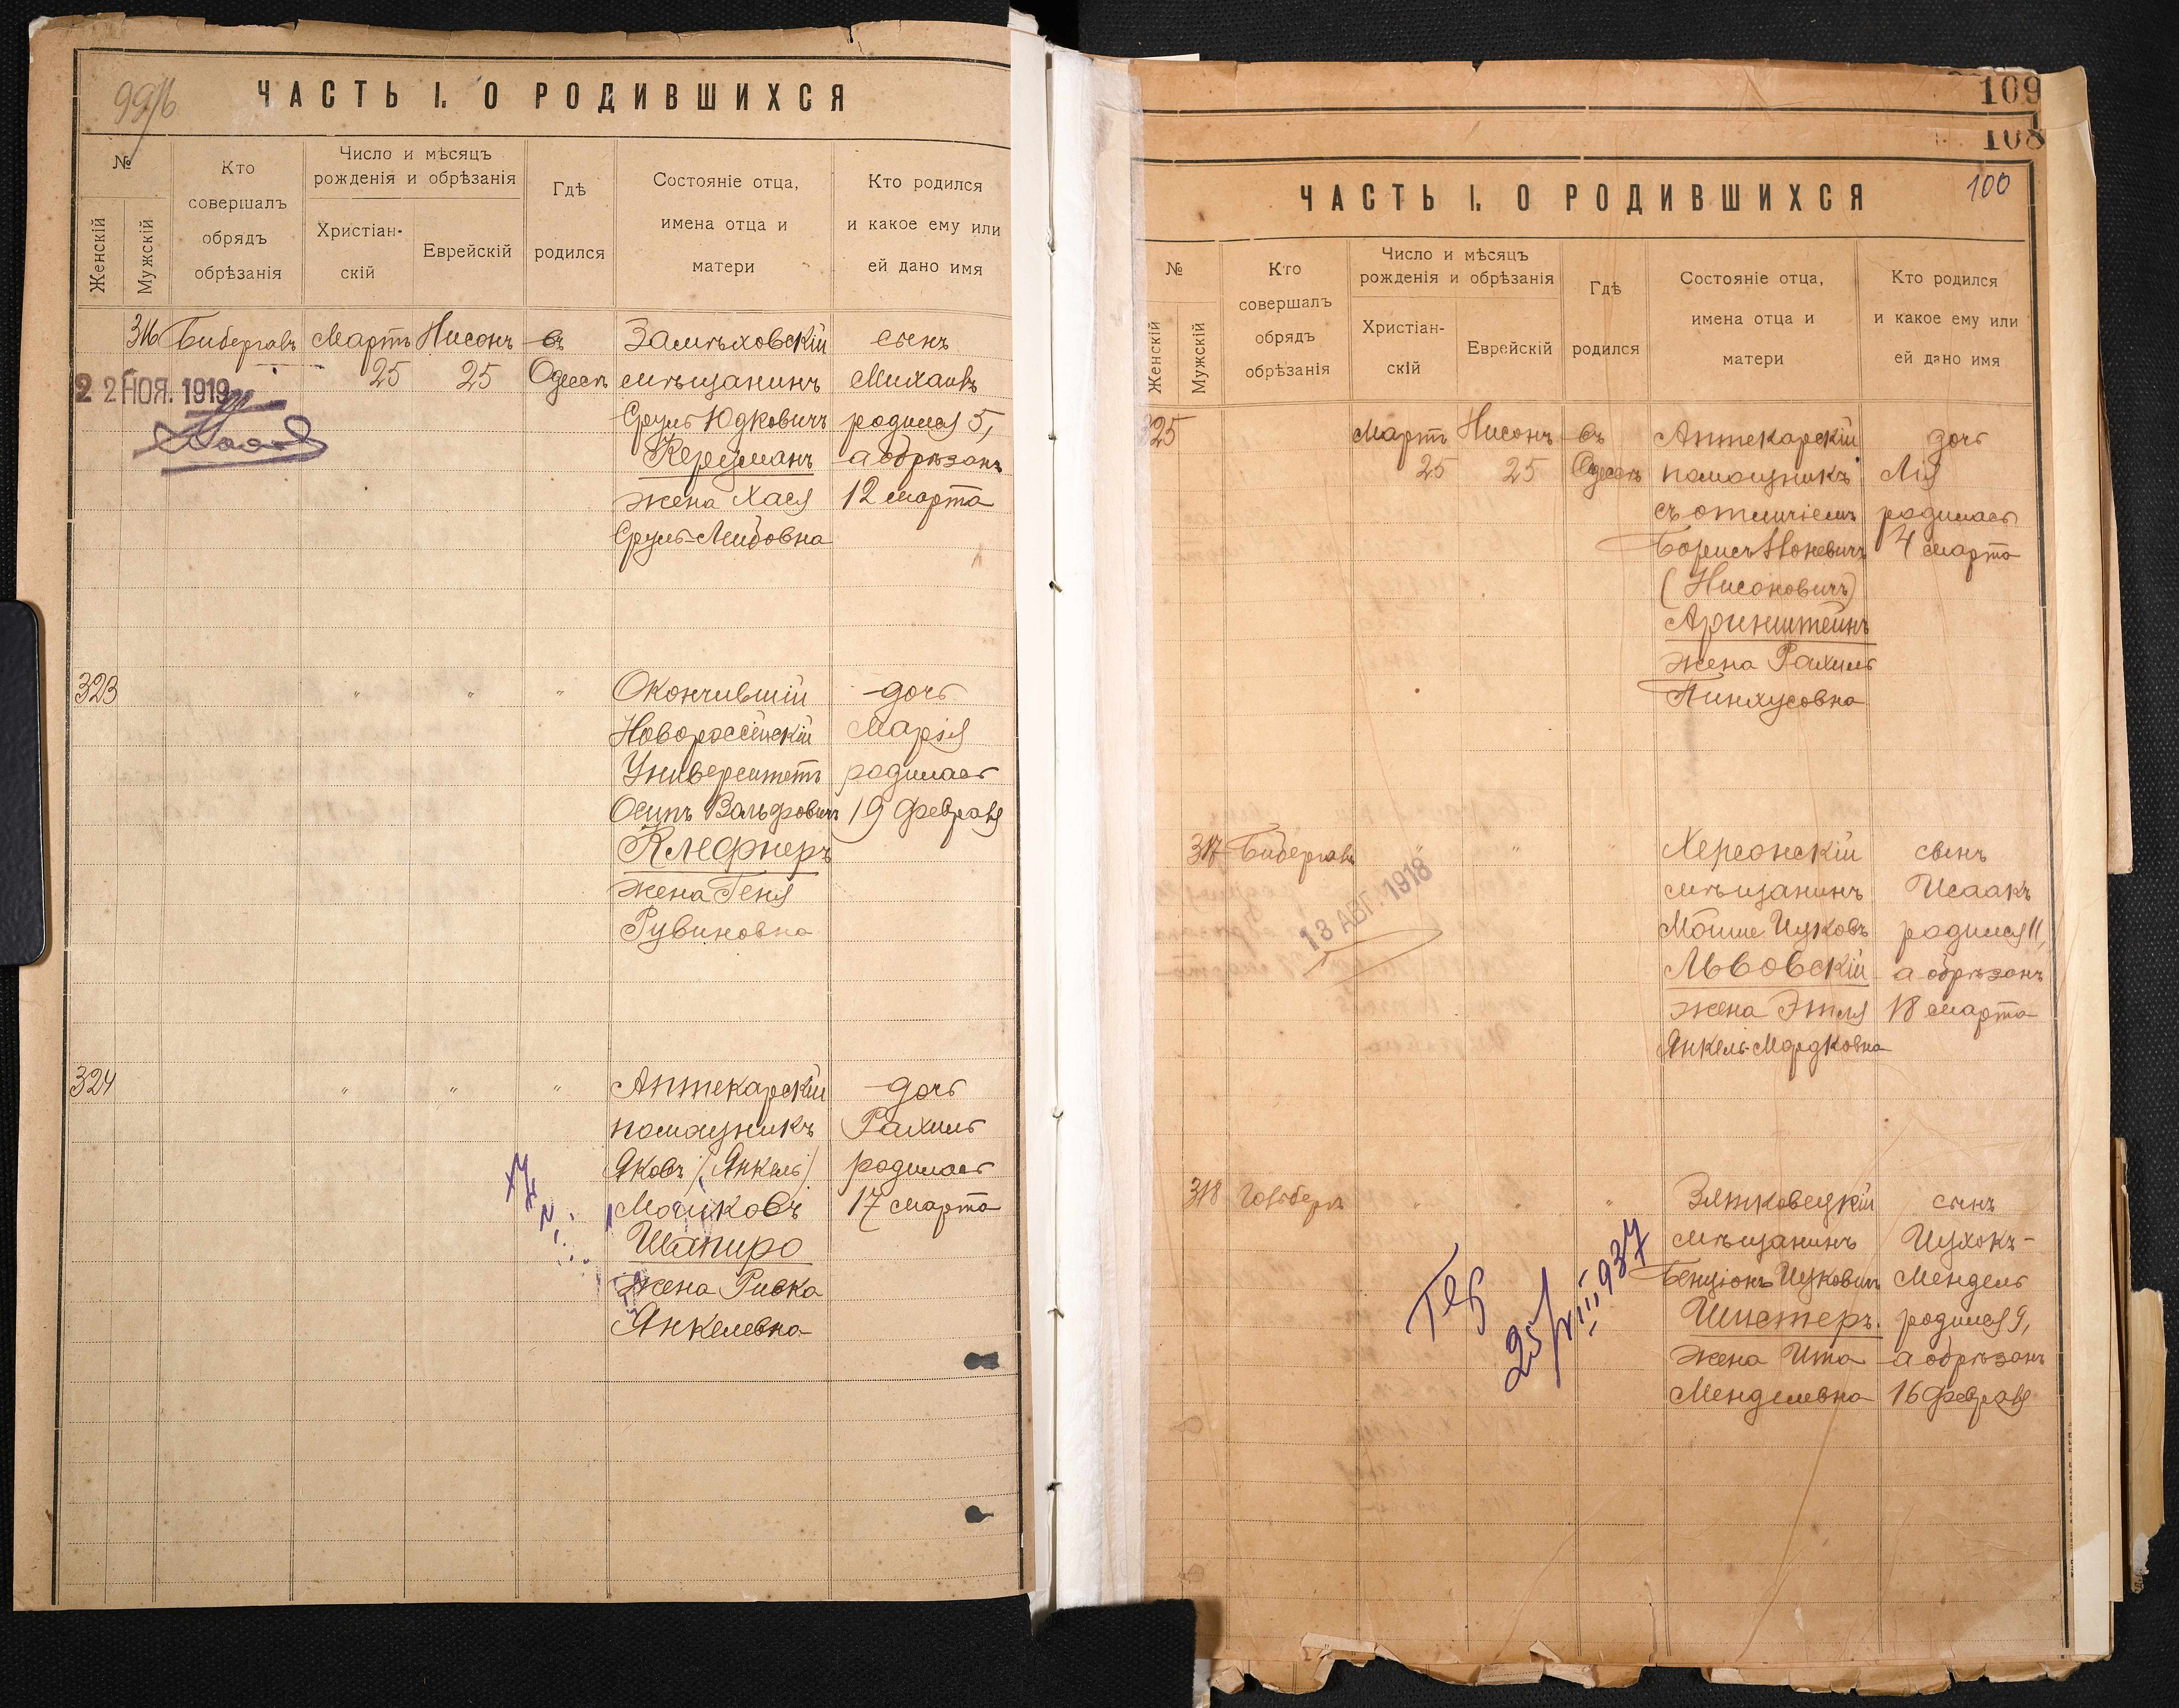 99/б
ЧАСТЬ I. О РОДИВШИХСЯ
№
Женскій
Мужскій
Кто
совершалъ
обрядъ
обрѣзанія
Число и мѣсяцъ
рожденія и обрѣзанія
Христіан-
скій
Еврейскій
Гдѣ
родился
Состояніе отца,
имена отца и
матери
Кто родился
и какое ему или
ей дано имя
316 Бибергалъ Мартъ Нисонъ въ Замѣховскій сынъ
25 25 Одессѣ мѣщанинъ Михаилъ
2 2 НОЯ. 1919
Сруль Юдковичъ родился 5,
Керцманъ а обрѣзанъ
жена Хася 12 марта
Сруль-Лейбовна
323 " " " Окончившій дочь
Новороссійскій Марія
Университетъ родилась
Осипъ Вольфовичъ 19 февраля
Клефнеръ
жена Геня
Рувиновна
324 " " " Аптекарскій дочь
помощникъ Рахиль
Яковъ (Янкель) родилась
Мошковъ 17 марта
Шапиро
жена Ривка
Янкелевна
109
108
100
ЧАСТЬ I. О РОДИВШИХСЯ
№
Женскій
Мужскій
Кто
совершалъ
обрядъ
обрѣзанія
Число и мѣсяцъ
рожденія и обрѣзанія
Христіан-
скій
Еврейскій
Гдѣ
родился
Состояніе отца,
имена отца и
матери
Кто родился
и какое ему или
ей дано имя
325 Мартъ Нисонъ въ Аптекарскій дочь
25 25 Одессѣ помощникъ Лія
съ отличіемъ родилась
Борисъ Ноневичъ 4 марта
(Нисоновичъ)
Аринштейнъ
жена Рахиль
Пинхусовна
317 Бибергалъ " " " Херсонскій сынъ
мѣщанинъ Исаакъ
13 АВГ. 1918
Мойше Ицковъ родился 11,
Львовскій а обрѣзанъ
жена Этля 18 марта
Янкель-Мордковна
318 Гольбергъ " " " Зятковецкій сынъ
мѣщанинъ Ицхокъ-
Бенціонъ Ицковичъ Мендель
Шистеръ. родился 9,
жена Ита а обрѣзанъ
Менделевна 16 февраля
25/VIII 937